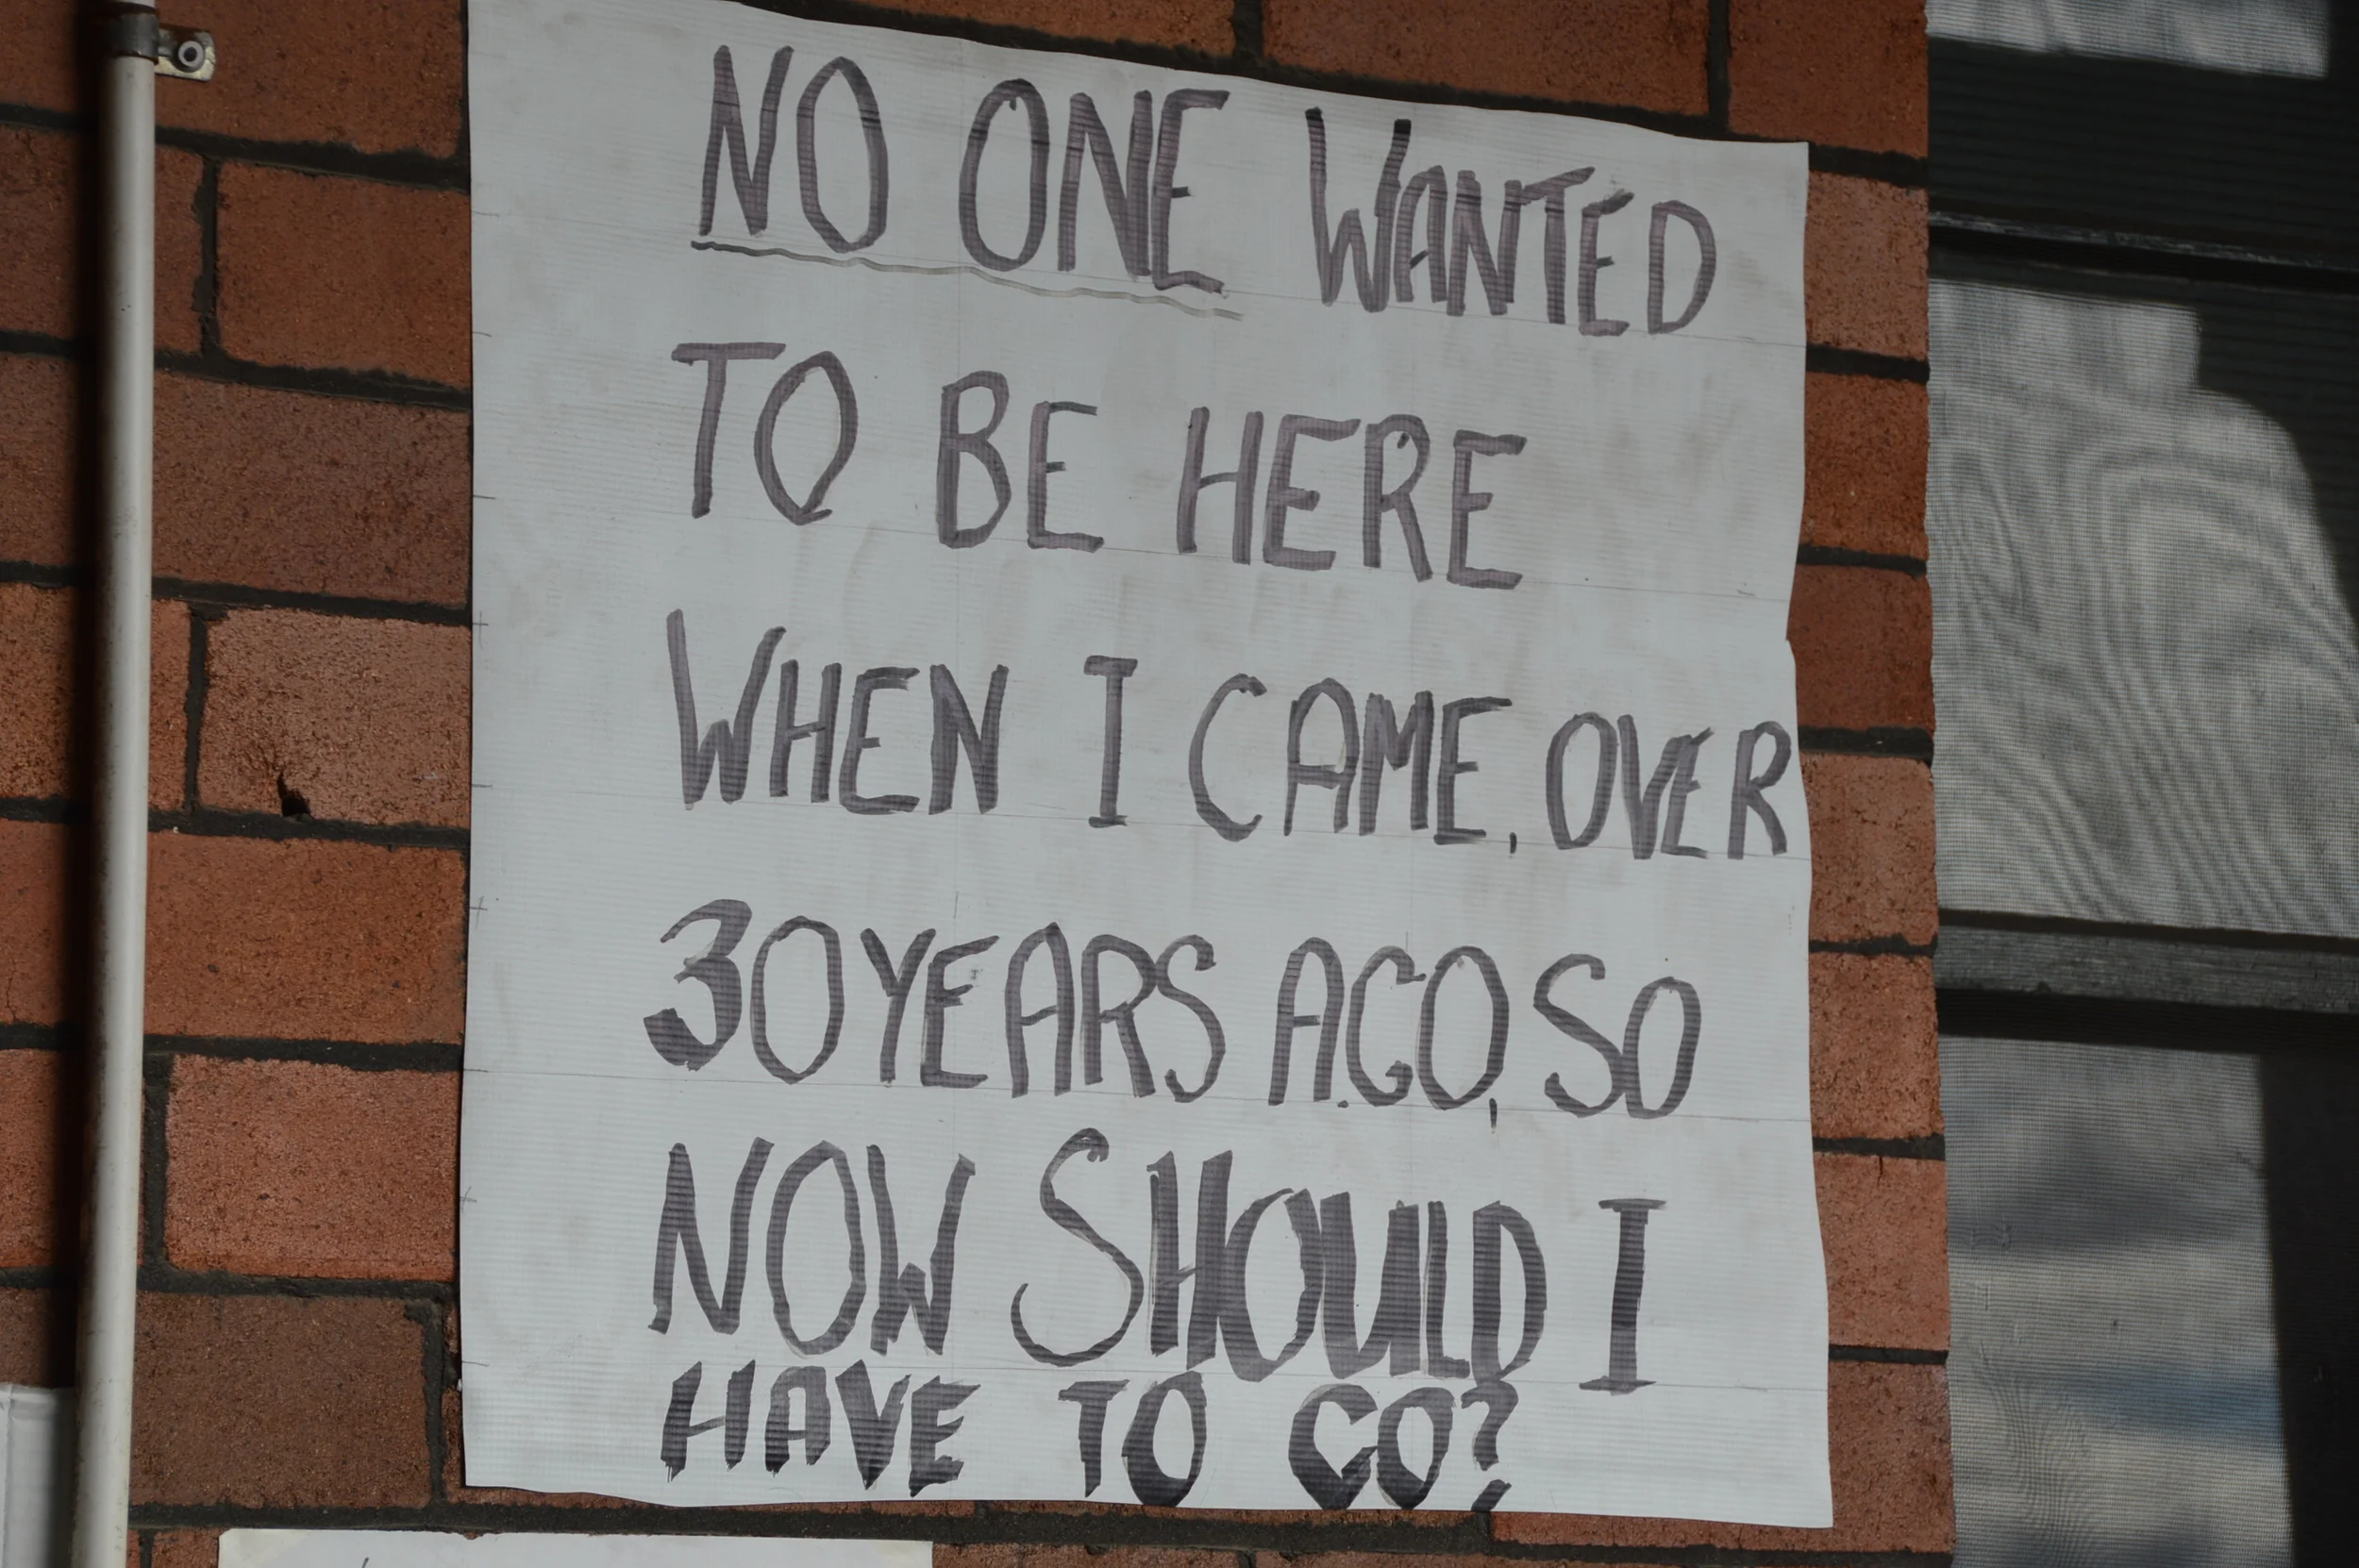 NO ONE WANTED
TO BE HERE
WHEN I CAME, OVER
30 YEARS AGO, SO
NOW SHOULD I
HAVE TO GO?